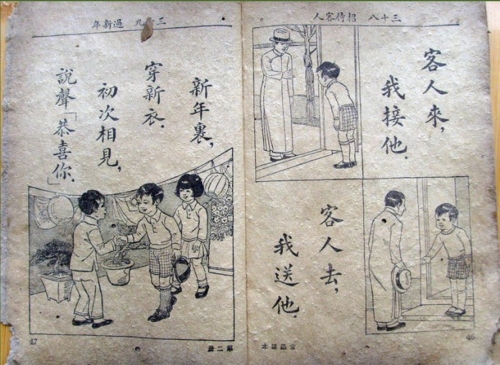 三十八 招待客人
客人來，
我接他．
客人去，
我送他．
46
三十九 過新年
新年裏，
穿新衣．
初次相見，
說聲「恭喜你．」
第二冊
47